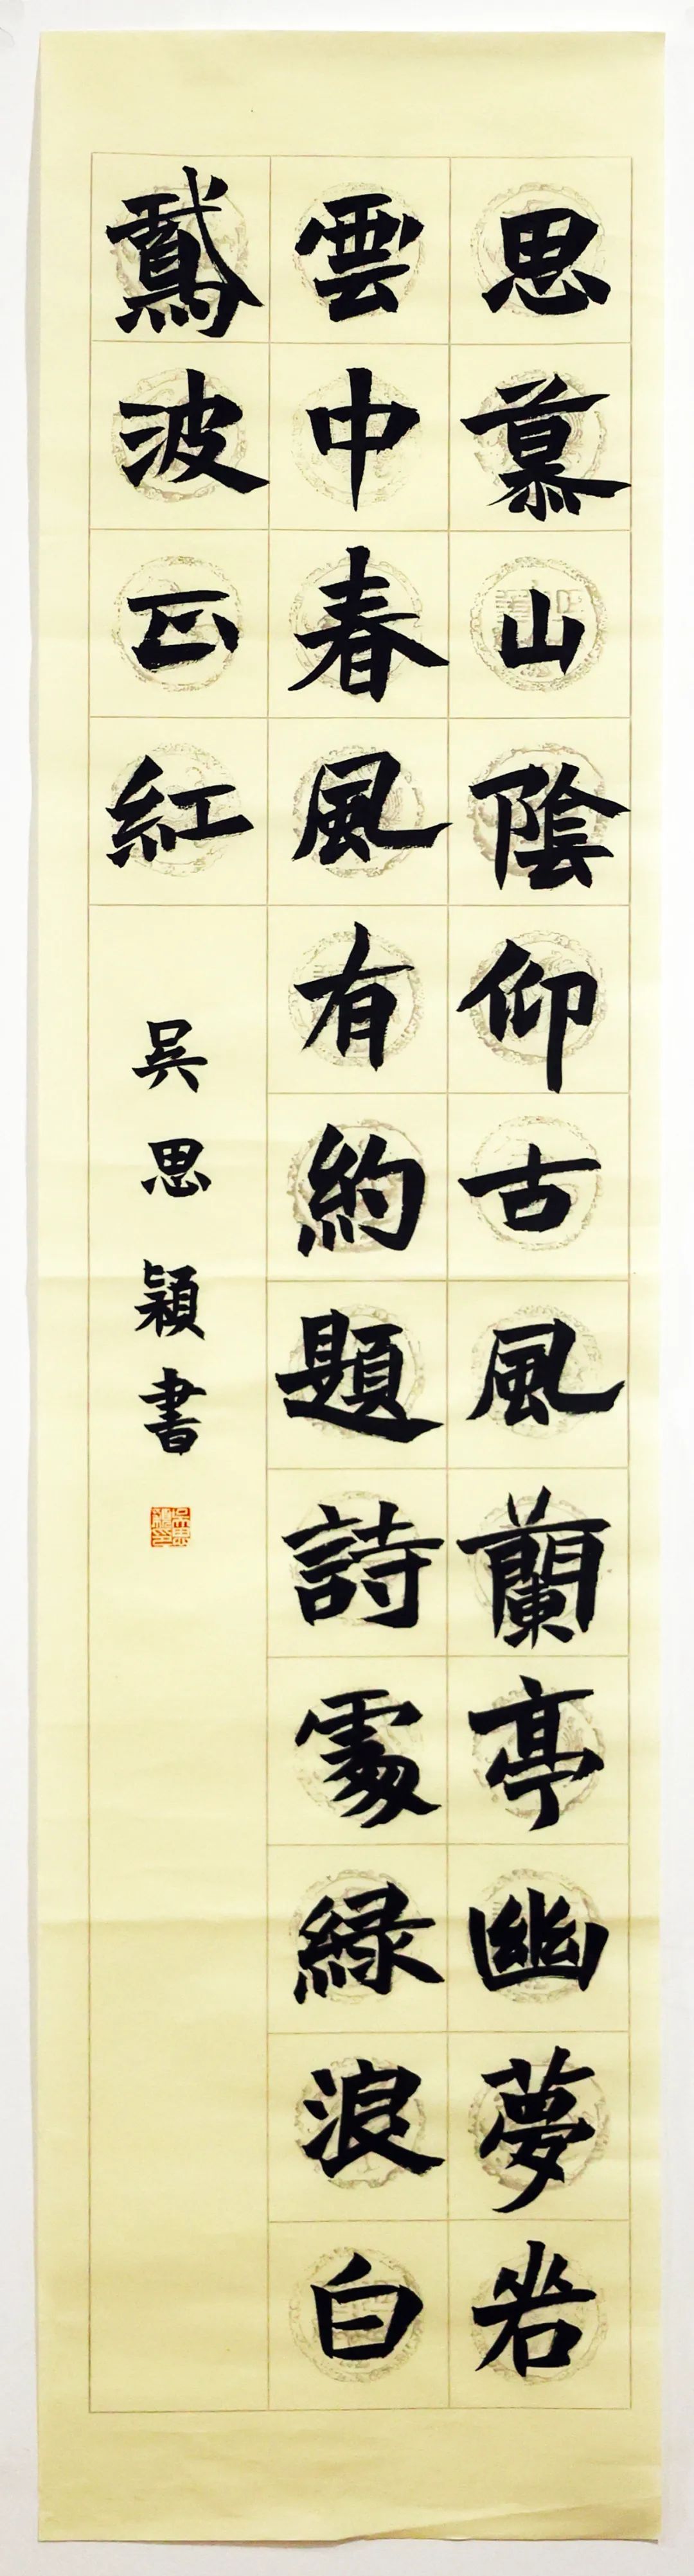 思慕山陰仰古風蘭亭幽夢若
雲中春風有約題詩處緑浪白
鵞波正紅
吳思穎書